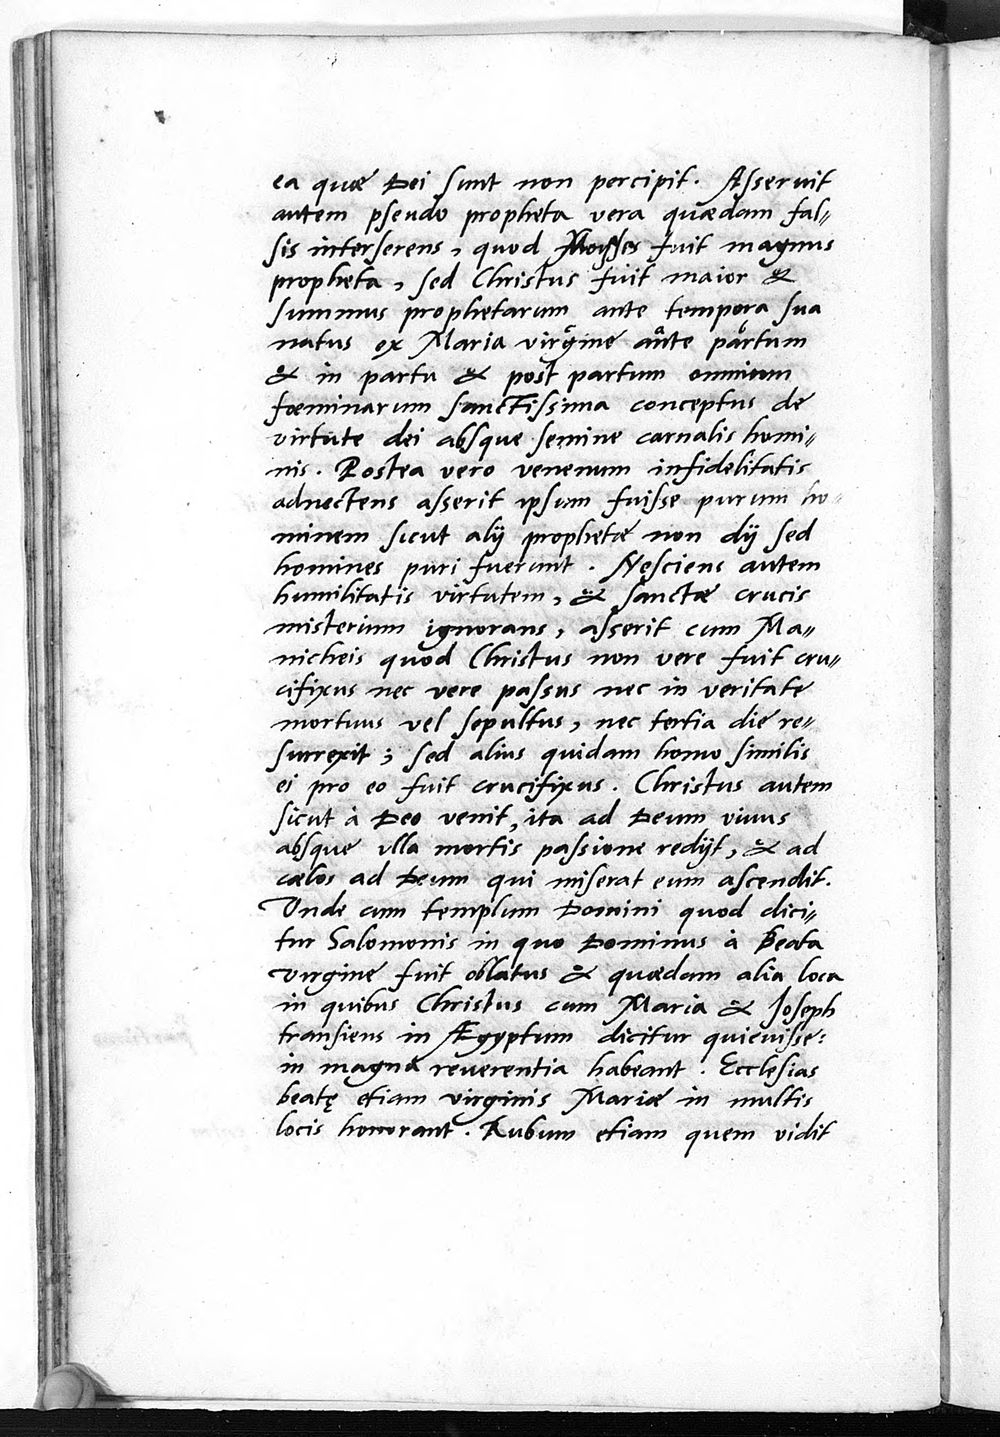 ea quæ Dei sunt non percipit. Asseruit
autem pseudo propheta vera quædam fal=
sis interserens, quod Moyses fuit magnus
propheta, sed Christus fuit maior &
summus prophetarum ante tempora sua
natus ex Maria virgine ante partum
& in partu & post partum omnium
fœminarum sanctissima conceptus de
virtute dei absque semine carnalis homi=
nis. Postea vero venenum infidelitatis
adnectens asserit ipsum fuisse purum ho=
minem sicut alij prophetæ non dij sed
homines puri fuerunt. Nesciens autem
humilitatis virtutem, & sanctæ crucis
misterium ignorans, asserit cum Ma=
nicheis quod Christus non vere fuit cru=
cifixus nec vere passus nec in veritate
mortuus vel sepultus, nec tertia die re=
surrexit; sed alius quidam homo similis
ei pro eo fuit crucifixus. Christus autem
sicut à Deo venit, ita ad Deum viuus
absque ulla mortis passione redijt, & ad
cælos ad Deum qui miserat eum ascendit.
Unde cum templum Domini quod dici=
tur Salomonis in quo Dominus à Beata
virgine fuit oblatus & quædam alia loca
in quibus Christus cum Maria & Joseph
transiens in Ægyptum dicitur quieuisse:
in magna reuerentia habeant. Ecclesias
beatę etiam virginis Mariæ in multis
locis honorant. Rubum etiam quem vidit